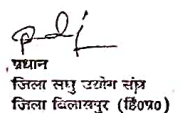 प्रधान
जिला लघु उद्योग संघ
जिला बिलासपुर (हि०प्र०)